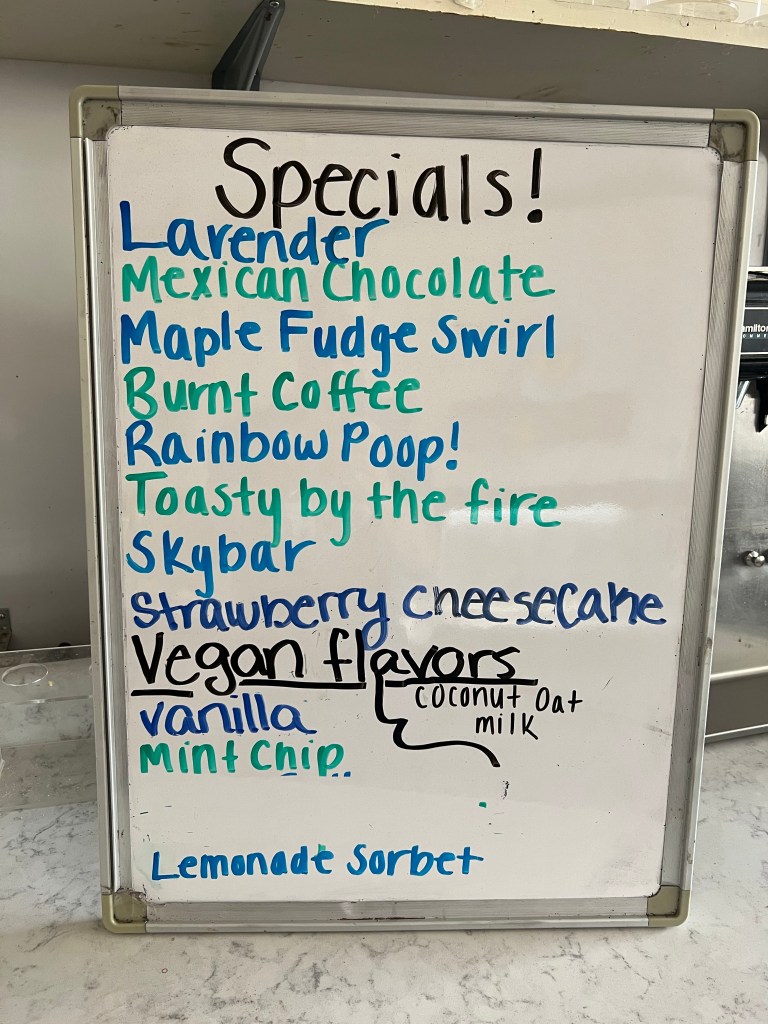 Specials!
Lavender
Mexican Chocolate
Maple Fudge Swirl
Burnt Coffee
Rainbow Poop!
Toasty by the fire
Skybar
Strawberry Cheesecake
Vegan flavors
coconut oat
milk
vanilla
Mint Chip
Lemonade Sorbet